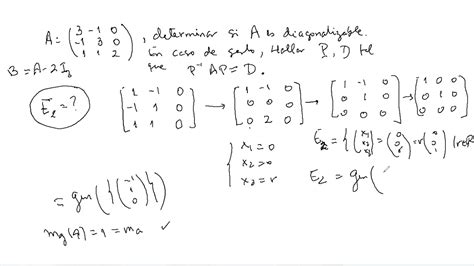 A = ( 3 -1 0 ; -1 3 0 ; 1 1 2 ) , determinar si A es diagonalizable.
En caso de serlo, Hallar P, D tal
que P⁻¹ A P = D.
B = A - 2I₃
E₂ = ?
[ 1 -1 0 ; -1 1 0 ; 1 1 0 ] → [ 1 -1 0 ; 0 0 0 ; 0 2 0 ] → [ 1 -1 0 ; 0 1 0 ; 0 0 0 ] → [ 1 0 0 ; 0 1 0 ; 0 0 0 ]
{ x₁ = 0
x₂ = 0
x₃ = r
E₂ = { ( x₁ x₂ x₃ ) = ( 0 0 r ) = r ( 0 0 1 ) | r∈R
E₂ = gen (
= gen ( { ( -1 1 0 ) } )
mg(4) = 1 = ma ✓